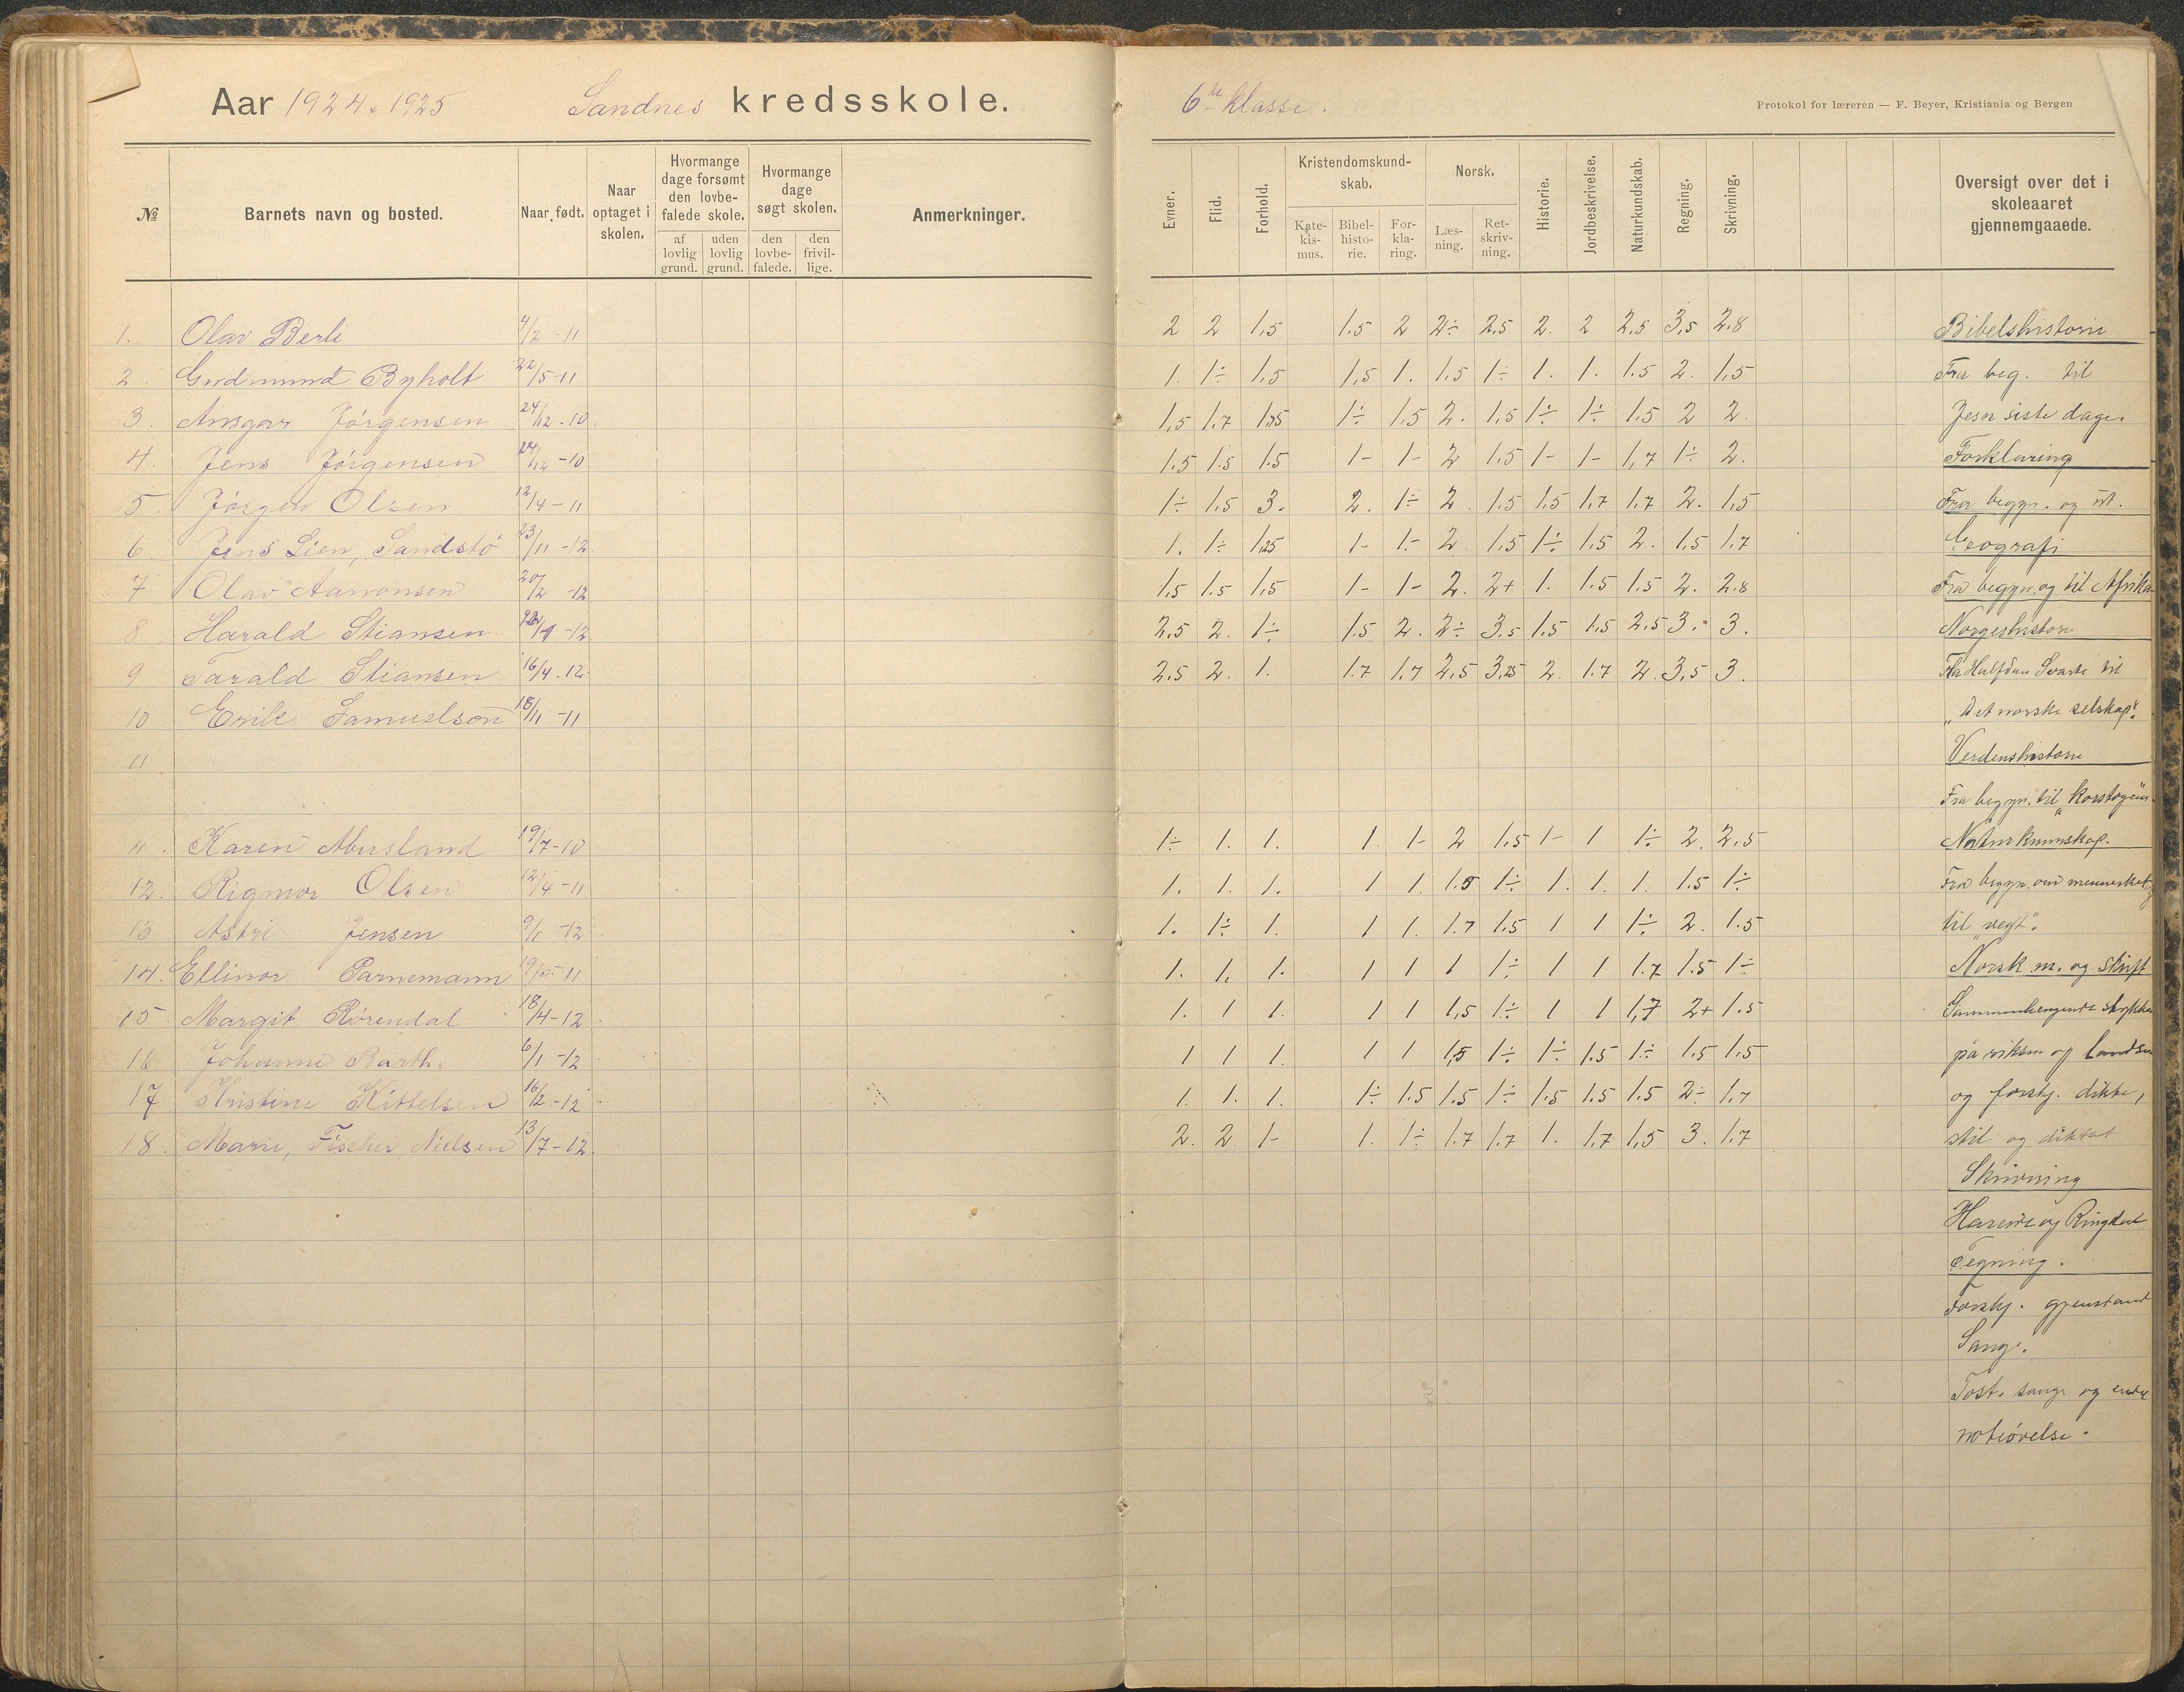 Aar 1924-1925 Sandnes kredsskole. 6te klasse.
Protokol for læreren — F. Beyer, Kristiania og Bergen
№ Barnets navn og bosted. Naar født. Naar optaget i skolen. Hvormange dage forsømt den lovbefalede skole. af lovlig grund. uden lovlig grund. Hvormange dage søgt skolen. den lovbefalede. den frivillige. Anmerkninger. Evner. Flid. Forhold. Kristendomskundskab. Katekismus. Bibelhistorie. Forklaring. Norsk. Læsning. Retskrivning. Historie. Jordbeskrivelse. Naturkundskab. Regning. Skrivning. Oversigt over det i skoleaaret gjennemgaaede.
1. Olav Berli 4/2 -11 2 2 1,5 1.5 2 2÷ 2,5 2. 2 2,5 3,5 2.8 Bibelshistorie
2. Gudmund Byholt 22/5-11 1. 1÷ 1,5 1,5 1. 1.5 1÷ 1. 1. 1.5 2. 1,5 Fra beg. til
3. Ansgar Jørgensen 24/12-10 1,5 1,7 1,75 1÷ 1,5 2. 1,5 1÷ 1÷ 1.5 2 2. Jesu siste dage.
4. Jens Jørgensen 24/12-10 1.5 1.5 1.5 1- 1- 2 1.5 1- 1- 1,7 1÷ 2. Forklaring
5 Jørgen Olsen 12/4-11 1÷ 1,5 3. 2. 1÷ 2. 1.5 1.5 1,7 1,7 2. 1,5 Fra beggn. og ut.
6 Jens Lien, Sandstö 23/11-12 1. 1÷ 1,25 1- 1.- 2 1.5 1÷ 1.5 2. 1.5 1.7 Geografi
7 Olav Aanonsen 20/2 -12 1.5 1.5 1,5 1- 1- 2. 2+ 1. 1.5 1.5 2. 2.8 Fra beggn. og til Afrika
8 Harald Stiansen -12 2,5 2. 1÷ 1.5 2. 2÷ 3.5 1.5 1.5 2.5 3. 3. Norgeshistorie
9 Tarald Stiansen 16/4-12 2.5 2. 1. 1.7 1.7 2,5 3,25 2. 1.7 2. 3,5 3. Fra Halfdan Svarte til
10 Erik Samuelson 18/11-11 "Det norske selskap".
11 Verdenshistorie
Fra begyn. til "Korstogene"
11. Karen Abusland 19/7-10 1÷ 1. 1. 1. 1- 2 1.5 1- 1 1÷ 2. 2.5 Naturkunnskap.
12. Rigmor Olsen 12/4-11 1. 1. 1. 1 1. 1.5 1÷ 1. 1. 1. 1.5 1÷ Fra begyn. om mennesket
13 Astri Jensen 9/1 -12 1. 1÷ 1. 1 1. 1.7 1.5 1 1 1÷ 2. 1.5 til
14. Ellinor Parnemann 1. 1. 1. 1 1 1 1÷ 1 1 1.7 1.5 1÷ Norsk m. og Skrift
15. Margit Rørendal 18/4-12 1. 1 1. 1 1 1,5 1÷ 1 1 1,7 2+ 1.5 Sammenhengende stykker
16 Johanne Barth. 6/1 -12 1 1 1. 1 1 1,5 1÷ 1÷ 1.5 1÷ 1.5 1.5 på riksm og
17 Kristine Kittelsen 16/2-12 1. 1. 1. 1÷ 1.5 1.5 1÷ 1.5 1.5 1.5 2÷ 1.7 og forskj. dikte,
18. Marie, Fischer Nielsen 13/7-12. 2. 2 1- 1. 1÷ 1.7 1.7 1. 1.7 1,5 3. 1.7 stil og diktat
Skrivning
og Ringdal
Tegning.
Forskj. gjenstand
Sang.
sange og
noteøvelse.